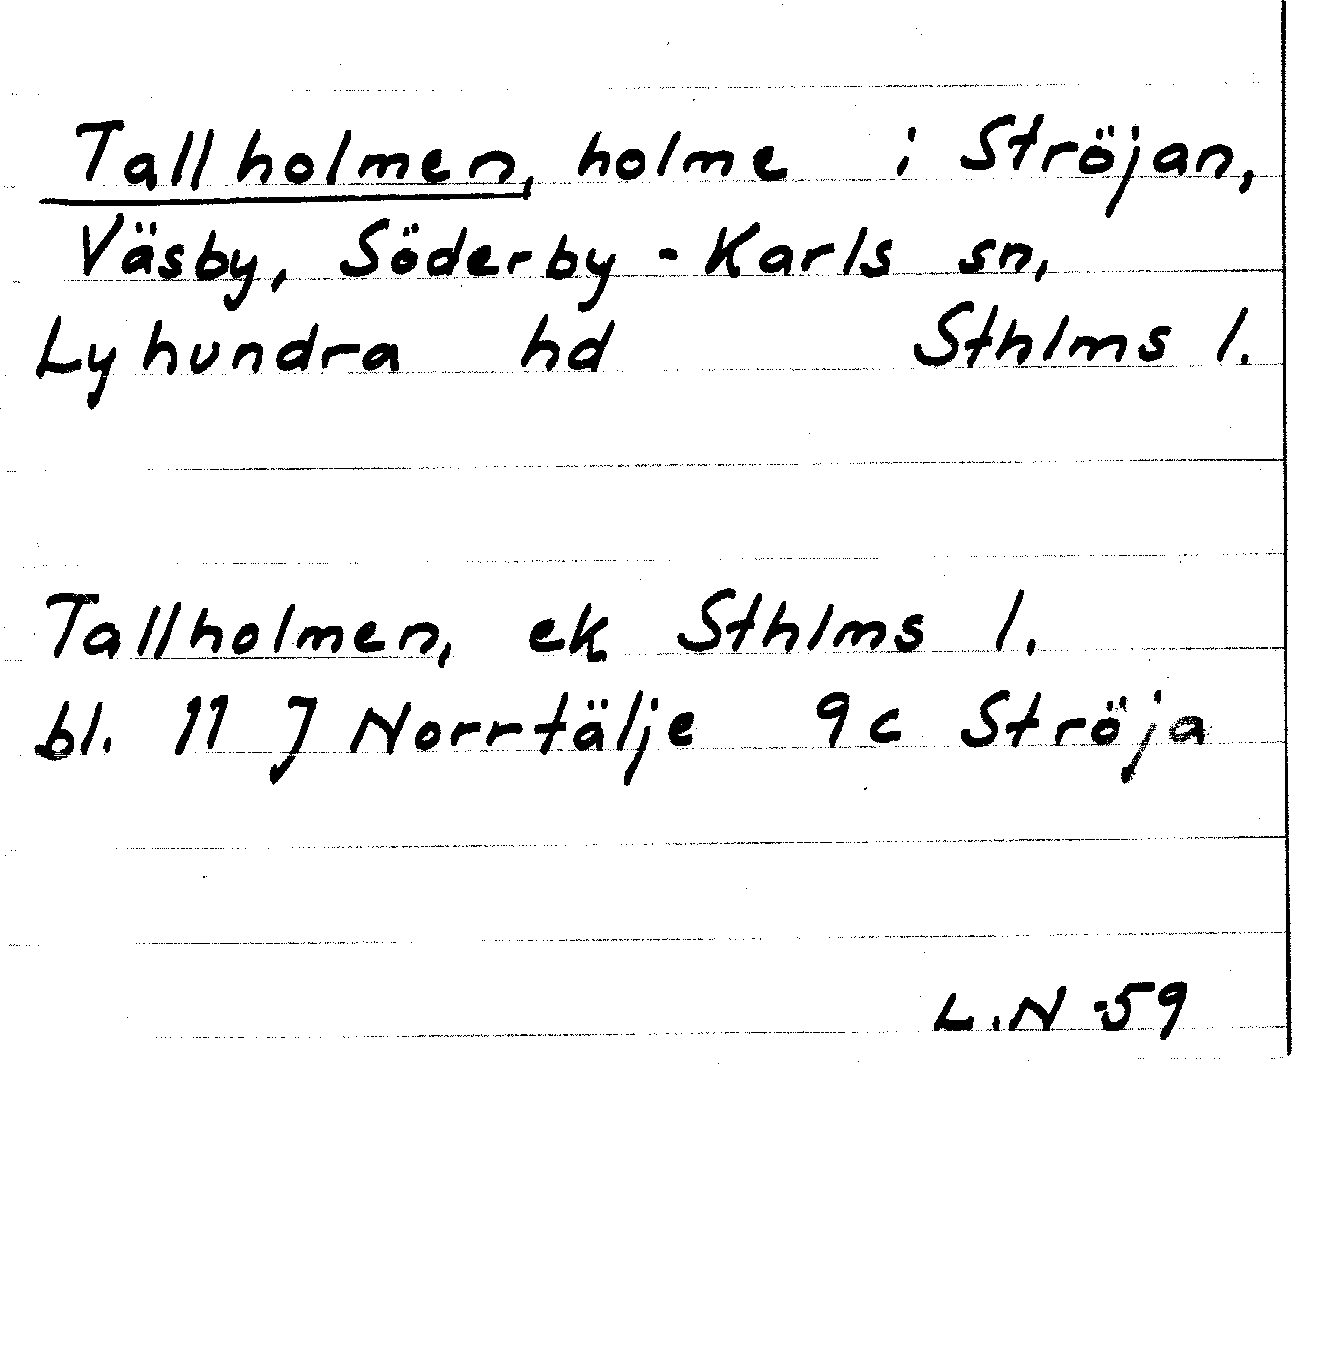 Tallholmen, holme i Ströjan,
Väsby, Söderby-Karls sn,
Lyhundra hd Sthlms l.
Tallholmen, ek Sthlms l.
bl. 11 J Norrtälje 9c Ströja
L.N -59